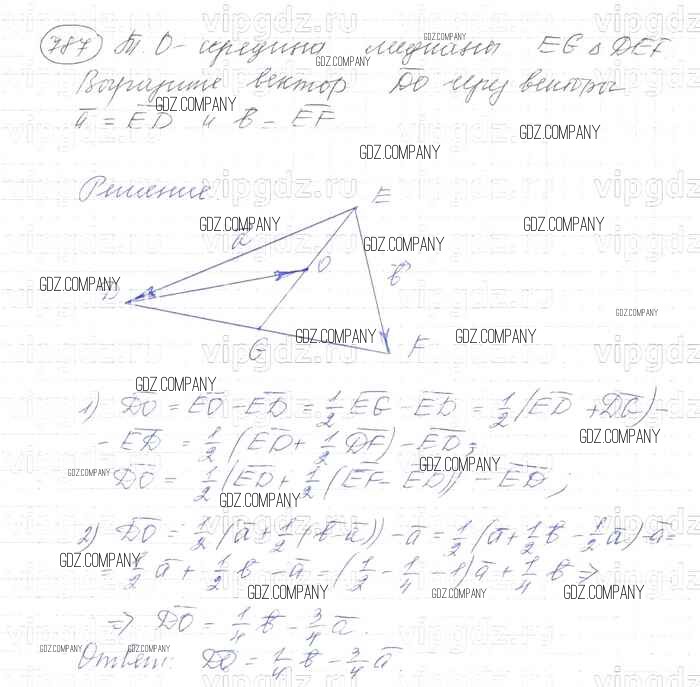 787 Т. О - середина медианы EG △ DEF
Выразите вектор DO через векторы
a̅ = E̅D̅ и b̅ = E̅F̅
Решение.
E
a⃗
O
b⃗
D
G
F
1) D̅O̅ = E̅O̅ - E̅D̅ = 1/2 E̅G̅ - E̅D̅ = 1/2 (E̅D̅ + D̅G̅) -
- E̅D̅ = 1/2 (E̅D̅ + 1/2 D̅F̅) - E̅D̅;
D̅O̅ = 1/2 (E̅D̅ + 1/2 (E̅F̅ - E̅D̅)) - E̅D̅;
2) D̅O̅ = 1/2 (a̅ + 1/2 (b̅ - a̅)) - a̅ = 1/2 (a̅ + 1/2 b̅ - 1/2 a̅) - a̅ =
= 1/2 a̅ + 1/2 b̅ - a̅ = (1/2 - 1/4 - 1) a̅ + 1/4 b̅ ⇒
⇒ D̅O̅ = 1/4 b̅ - 3/4 a̅.
Ответ: D̅O̅ = 1/4 b̅ - 3/4 a̅.
GDZ.COMPANY
vipgdz.ru